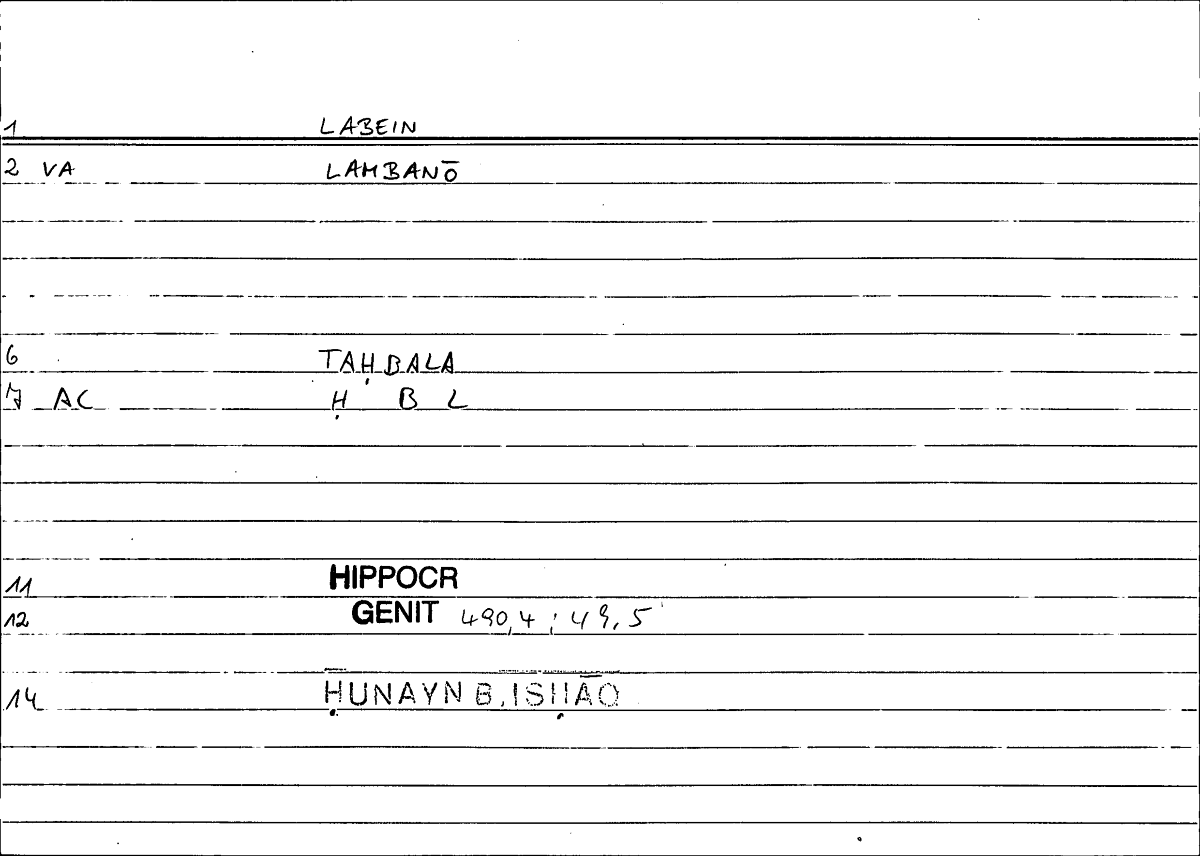 1 LABEIN
2 VA LAMBANŌ
6 TAḤBALA
7 AC Ḥ B L
11 HIPPOCR
12 GENIT 490,4 ; 49,5
14 ḤUNAYN B. ISḤĀQ